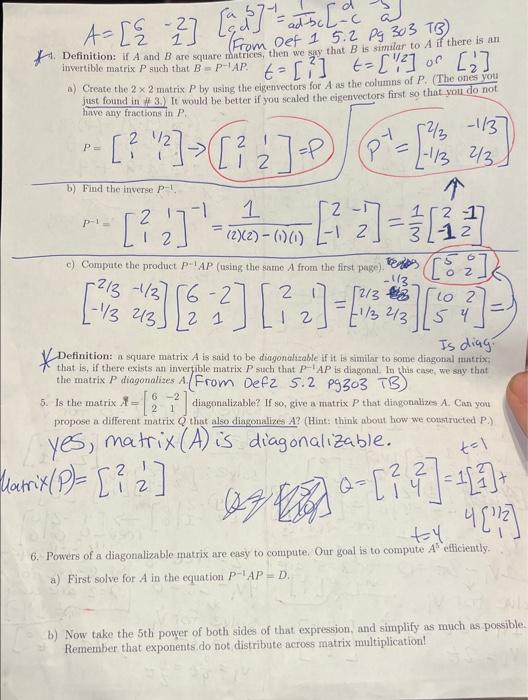 A = [6 -2; 2 1] [a b; c d]⁻¹ = 1/ad-bc [d -b; -c a]
(From Def 1 5.2 Pg 303 TB)
4. Definition: if A and B are square matrices, then we say that B is similar to A if there is an
invertible matrix P such that B = P⁻¹AP. t = [2; 1] t = [1/2; 1] or [1; 2]
a) Create the 2 × 2 matrix P by using the eigenvectors for A as the columns of P. (The ones you
just found in # 3.) It would be better if you scaled the eigenvectors first so that you do not
have any fractions in P.
P = [2 1/2; 1 1] → [2 1; 1 2] = P P⁻¹ = [2/3 -1/3; -1/3 2/3]
b) Find the inverse P⁻¹.
P⁻¹ = [2 1; 1 2]⁻¹ = 1/(2)(2)-(1)(1) [2 -1; -1 2] = 1/3 [2 -1; -1 2]
c) Compute the product P⁻¹AP (using the same A from the first page). [5 0; 0 2]
[2/3 -1/3; -1/3 2/3] [6 -2; 2 1] [2 1; 1 2] = [2/3 -1/3; -1/3 2/3] [10 2; 5 4] =
Is diag.
Definition: a square matrix A is said to be diagonalizable if it is similar to some diagonal matrix;
that is, if there exists an invertible matrix P such that P⁻¹AP is diagonal. In this case, we say that
the matrix P diagonalizes A. (From Def2 5.2 pg303 TB)
5. Is the matrix A = [6 -2; 2 1] diagonalizable? If so, give a matrix P that diagonalizes A. Can you
propose a different matrix Q that also diagonalizes A? (Hint: think about how we constructed P.)
yes, matrix (A) is diagonalizable.
t=1
Matrix (P) = [2 1; 1 2] Q = [2 2; 1 4] = 1[2; 1] +
t=4 4[1/2; 1]
6. Powers of a diagonalizable matrix are easy to compute. Our goal is to compute A⁵ efficiently.
a) First solve for A in the equation P⁻¹AP = D.
b) Now take the 5th power of both sides of that expression, and simplify as much as possible.
Remember that exponents do not distribute across matrix multiplication!